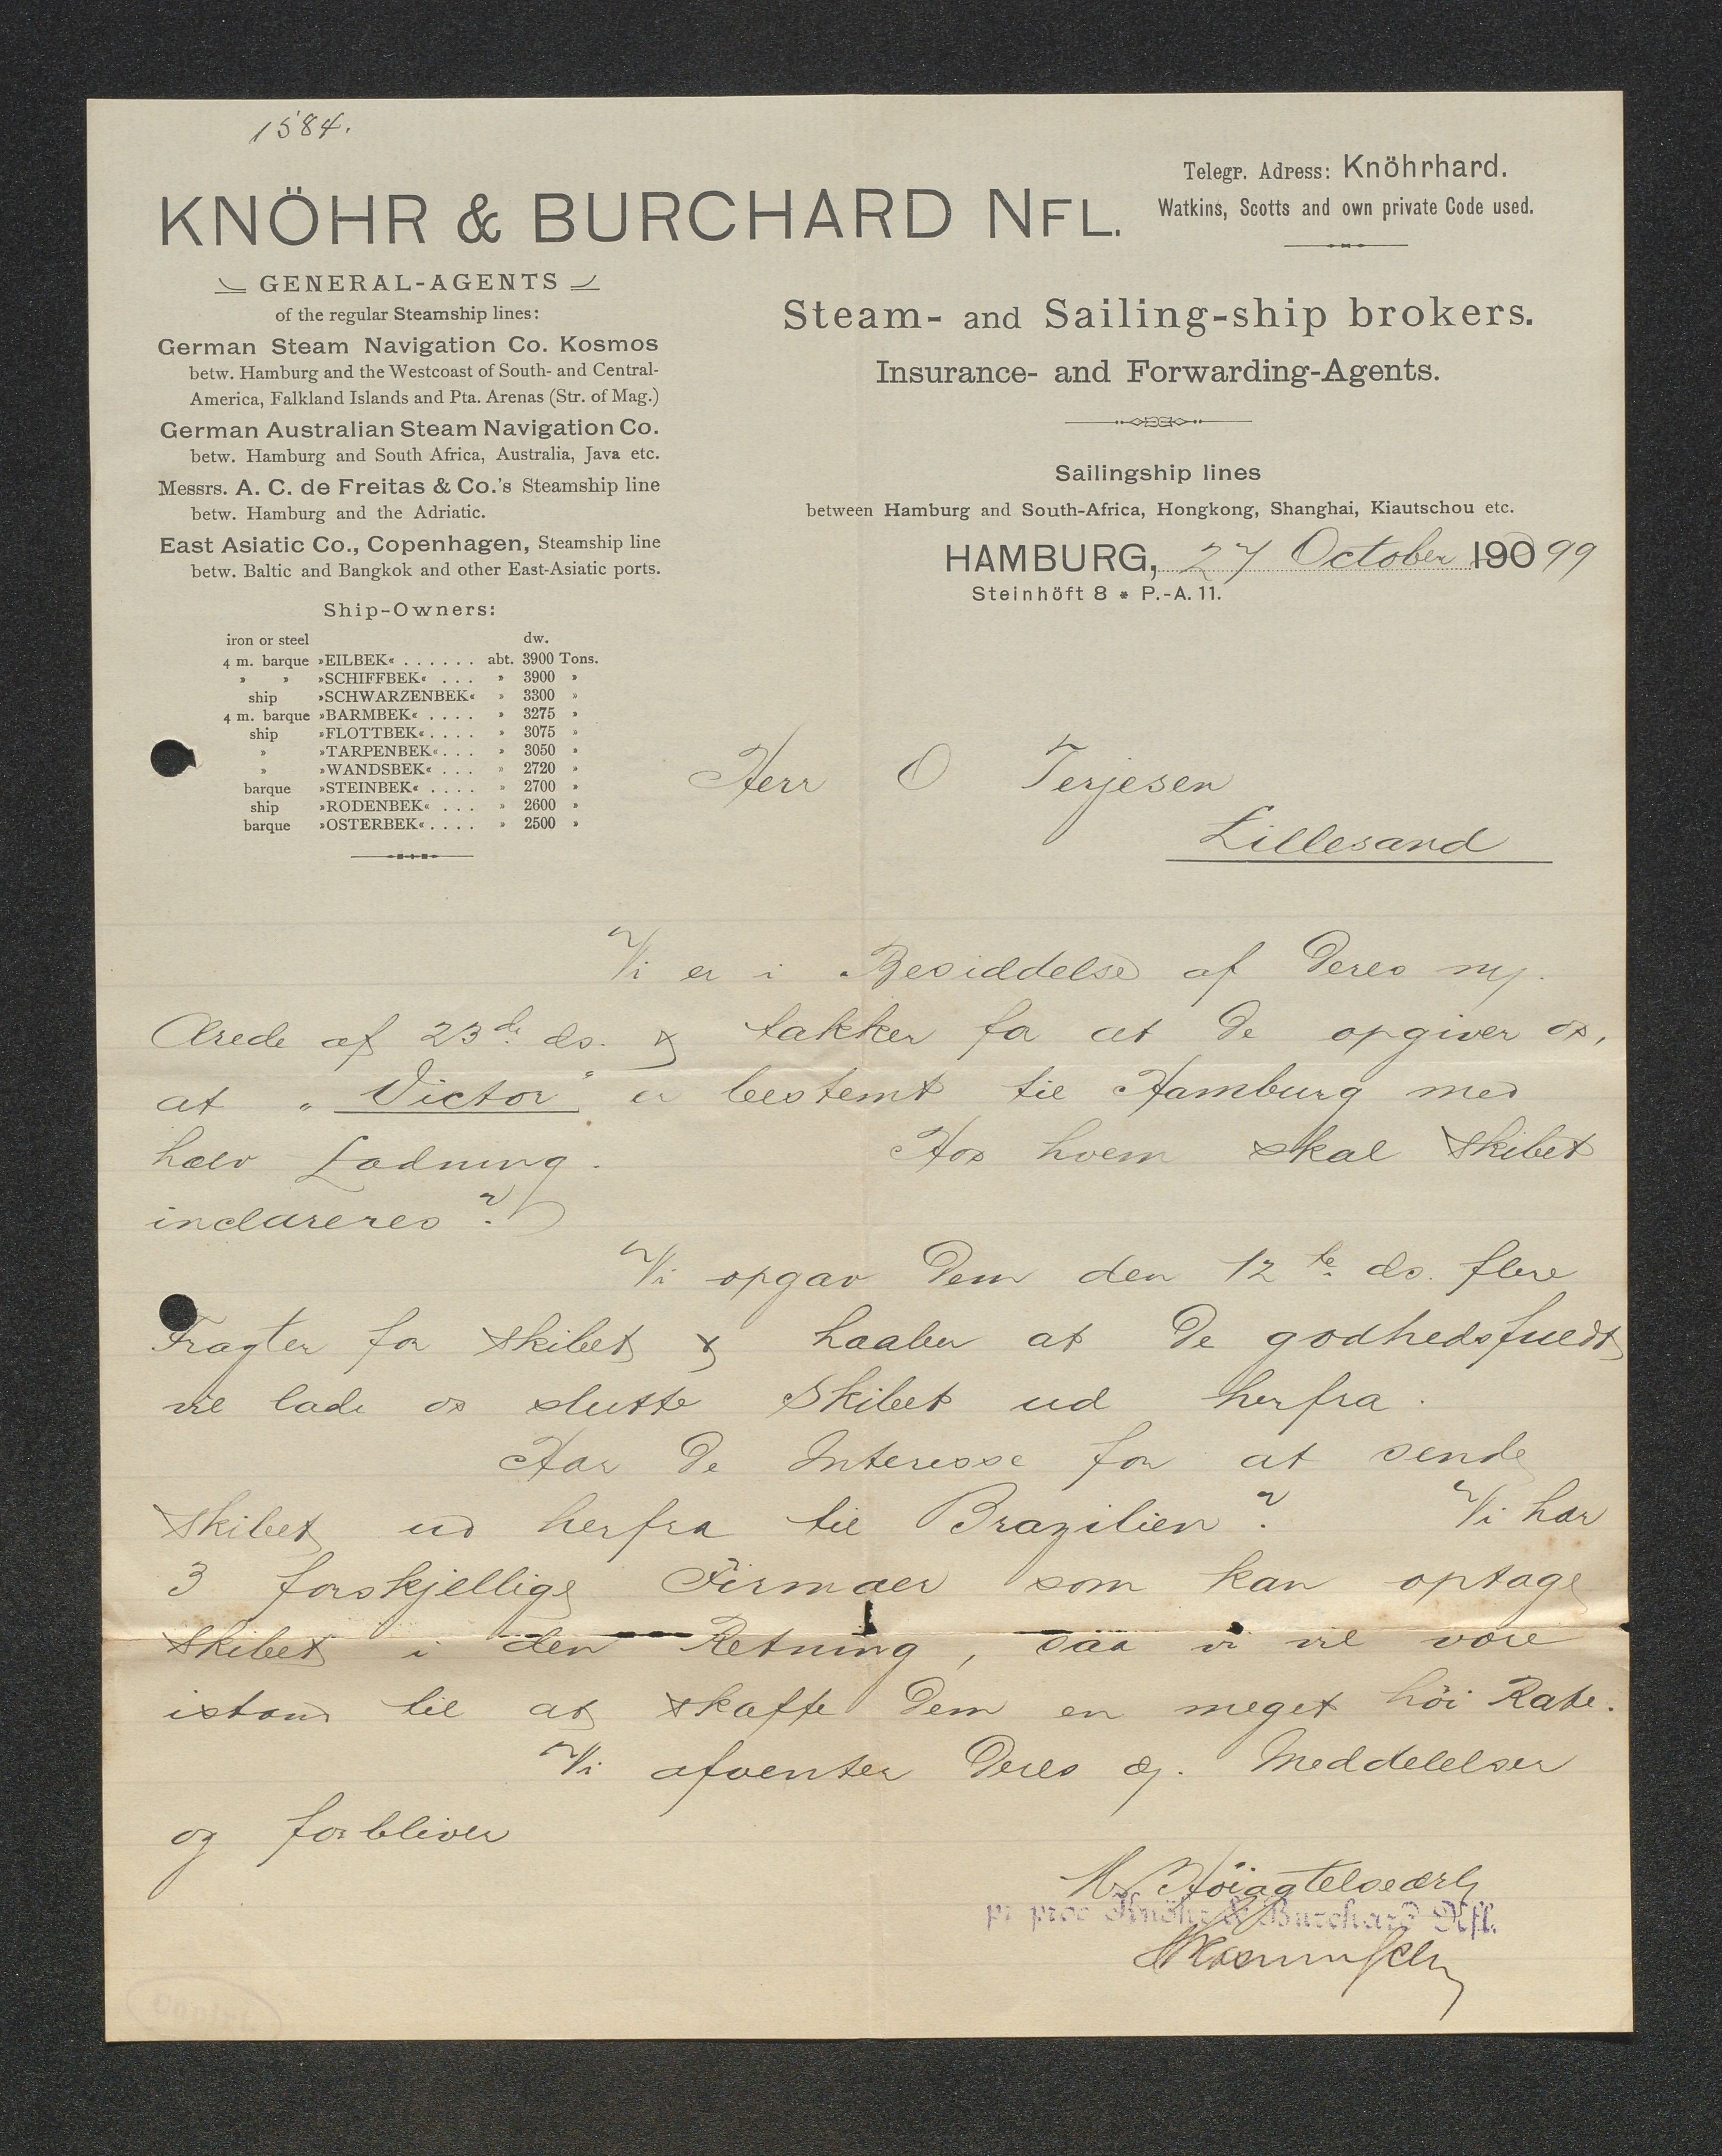 1584.
KNÖHR & BURCHARD NFL.
Telegr. Adress: Knöhrhard.
Watkins, Scotts and own private Code used.
GENERAL-AGENTS
of the regular Steamship lines:
German Steam Navigation Co. Kosmos
betw. Hamburg and the Westcoast of South- and Central-
America, Falkland Islands and Pta. Arenas (Str. of Mag.)
German Australian Steam Navigation Co.
betw. Hamburg and South Africa, Australia, Java etc.
Messrs. A. C. de Freitas & Co.'s Steamship line
betw. Hamburg and the Adriatic.
East Asiatic Co., Copenhagen, Steamship line
betw. Baltic and Bangkok and other East-Asiatic ports.
Ship-Owners:
iron or steel dw.
4 m. barque »EILBEK« . . . . . . abt. 3900 Tons.
» » »SCHIFFBEK« . . . » 3900 »
ship »SCHWARZENBEK« » 3300 »
4 m. barque »BARMBEK« . . . . » 3275 »
ship »FLOTTBEK« . . . . » 3075 »
» »TARPENBEK« . . . » 3050 »
» »WANDSBEK« . . . » 2720 »
barque »STEINBEK« . . . . » 2700 »
ship »RODENBEK« . . . » 2600 »
barque »OSTERBEK« . . . . » 2500 »
Steam- and Sailing-ship brokers.
Insurance- and Forwarding-Agents.
Sailingship lines
between Hamburg and South-Africa, Hongkong, Shanghai, Kiautschou etc.
HAMBURG, 27 October 190 99
Steinhöft 8 * P.-A. 11.
Herr O Terjesen
Lillesand
Vi er i Besiddelse af Deres
Ærede af 23de ds. & takker for at De opgiver os,
at "Victor" er bestemt til Hamburg med
halv Ladning. Hos hvem skal Skibet
inclareres?
Vi opgav Dem den 12te ds. flere
Fragter for Skibet & haaber at De godhedsfuldt
vil lade os slutte Skibet ud herfra.
Har De Interesse for at sende
Skibet ud herfra til Brazilien? Vi har
3 forskjellige Firmaer som kan optage
Skibet i den Retning, saa vi vil være
istand til at skaffe Dem en meget höi Rate.
Vi afventer Deres æ. Meddelelser
og forbliver
M. Höiagtelse ærb
pr proc Knöhr & Burchard Nfl.